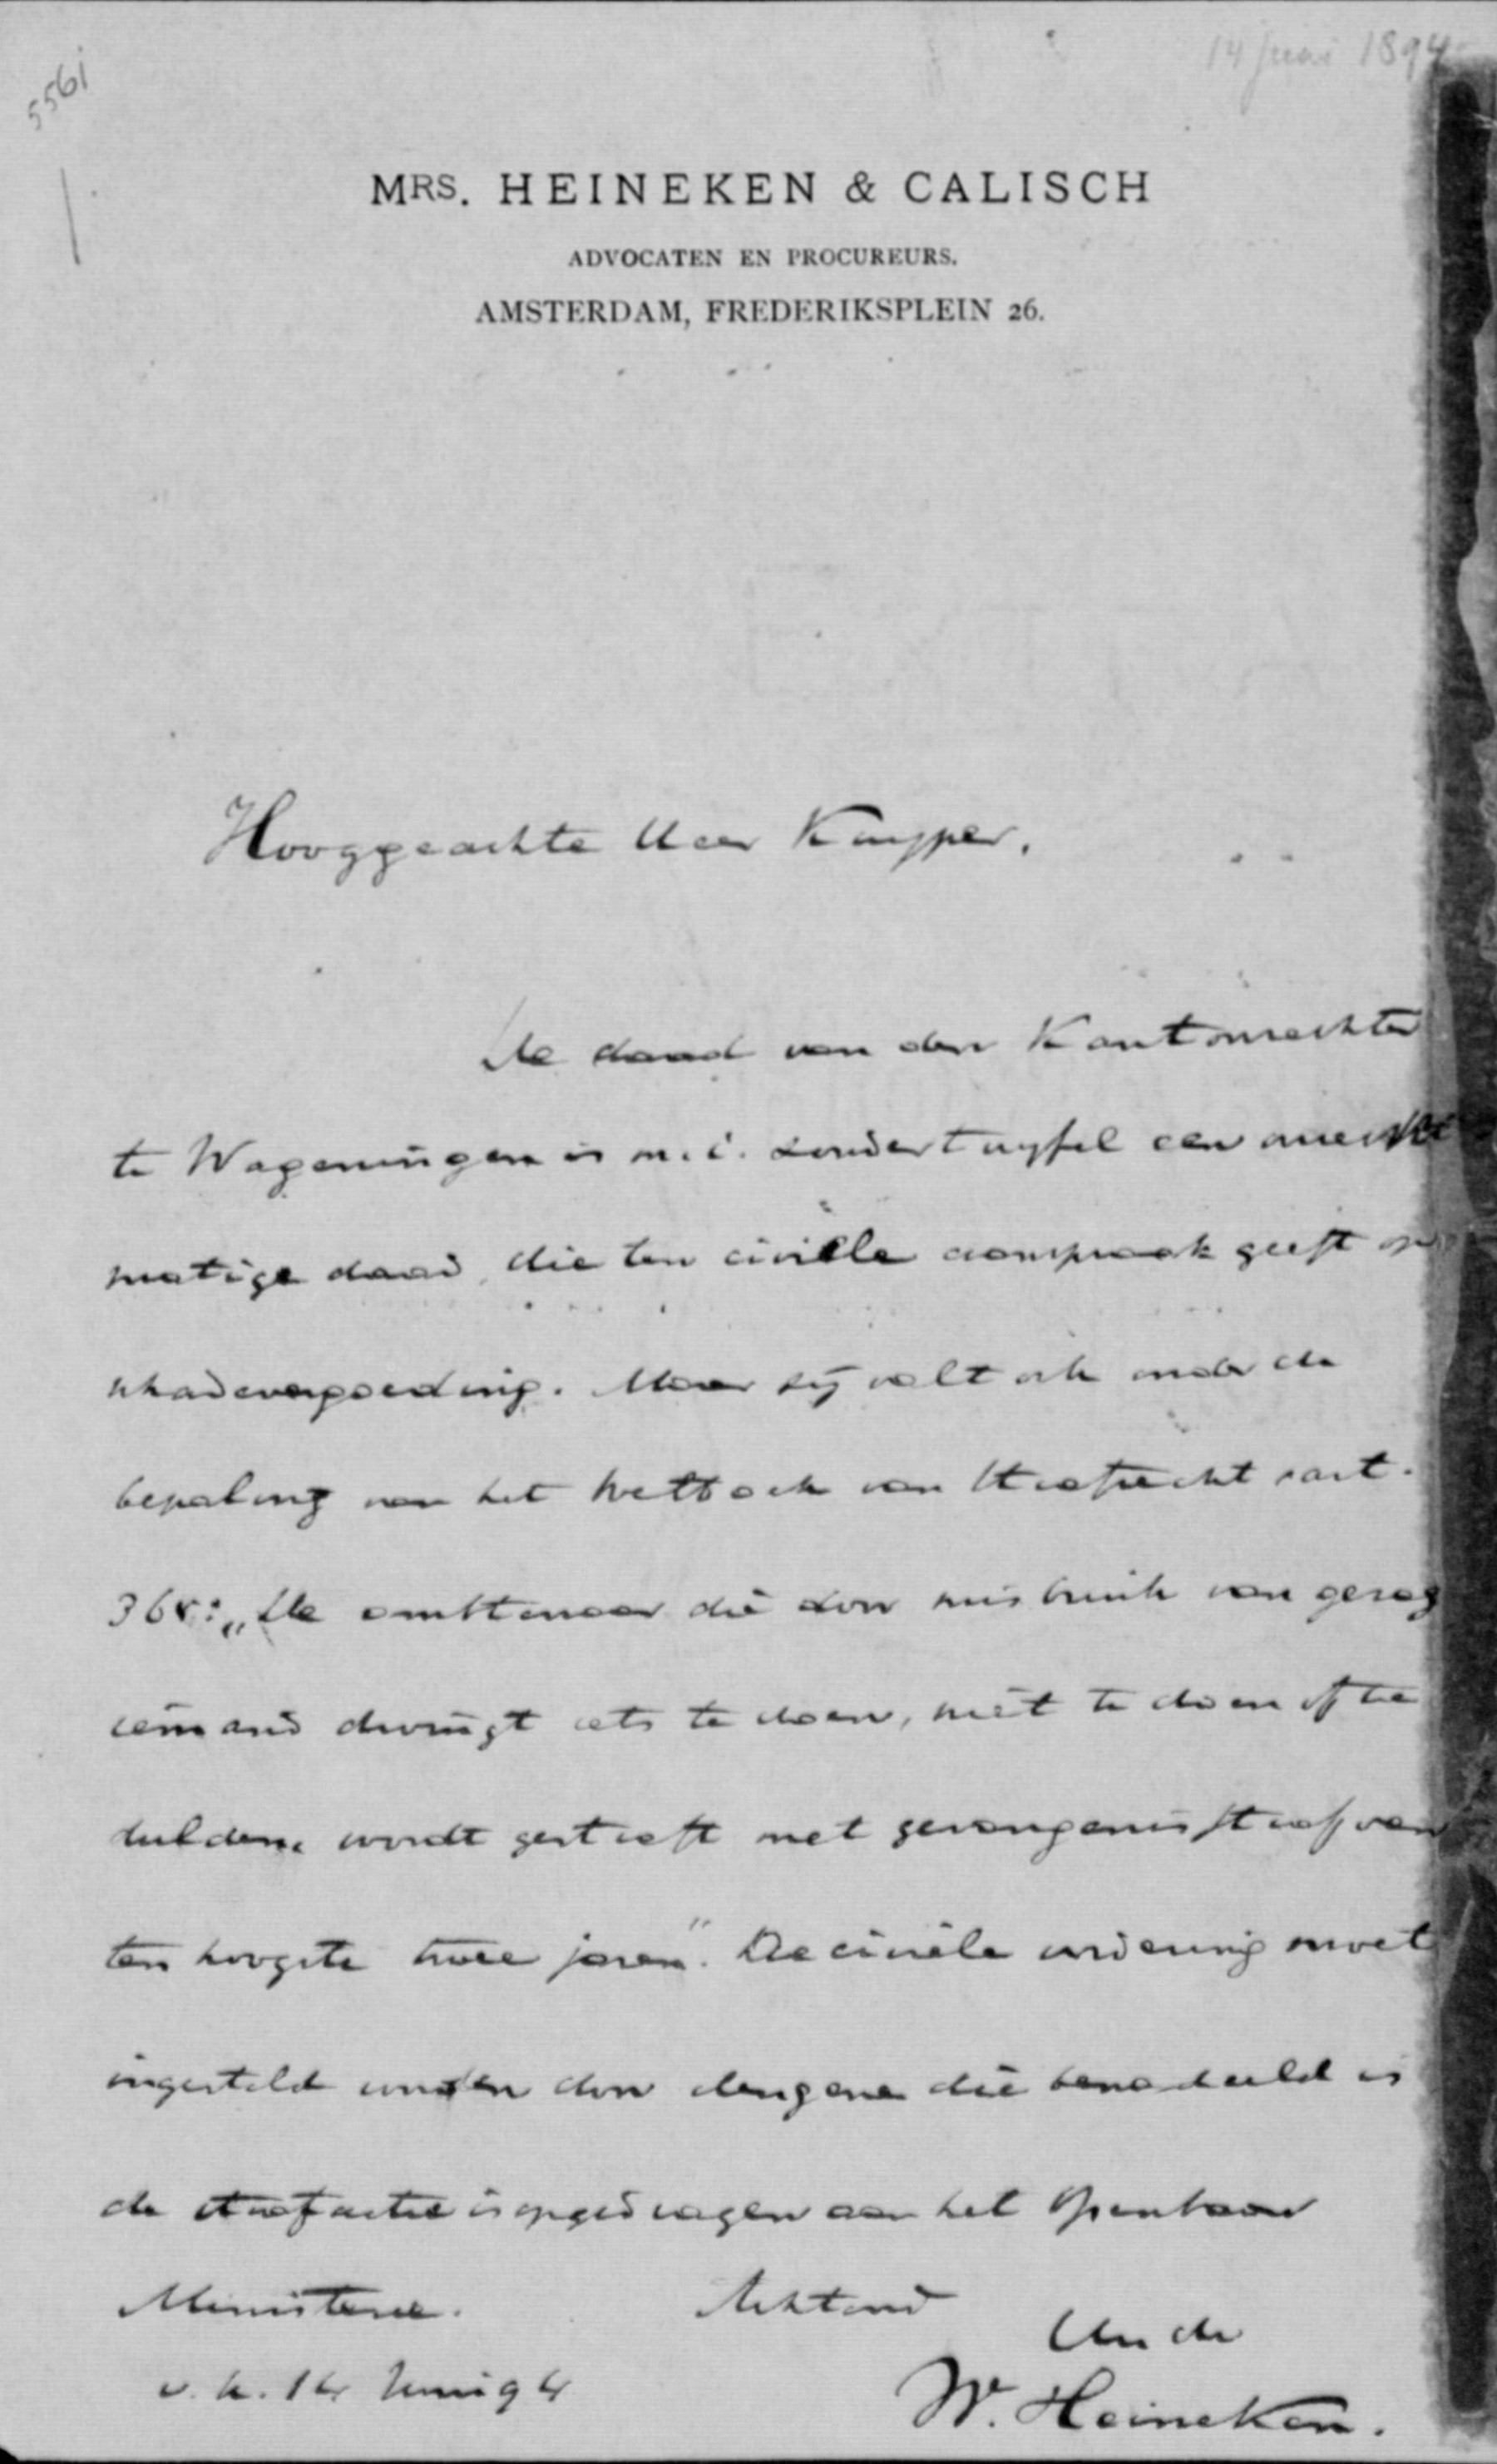 14 Juni 1894
5561
MRS. HEINEKEN & CALISCH
ADVOCATEN EN PROCUREURS.
AMSTERDAM, FREDERIKSPLEIN 26.
Hooggeachte Heer Kuyper.
De daad van den Kantonrechter
te Wageningen is m.i. zonder twyfel een onrecht
matige daad, die ten civiele aanspraak geeft op
schadevergoeding. Maar zij valt ook onder de
bepaling van het Wetboek van Strafrecht art.
365: „De ambtenaar die door misbruik van gezag
iemand dwingt iets te doen, niet te doen of te
dulden, wordt gestraft met gevangenisstraf van
ten hoogste twee jaren". De civiele vordering moet
ingesteld worden door dengene die benadeeld is
de strafactie is opgedragen aan het Openbaar
Ministerie. Achtend
Uw dr
v. h. 14 Juni 94
W. Heineken.